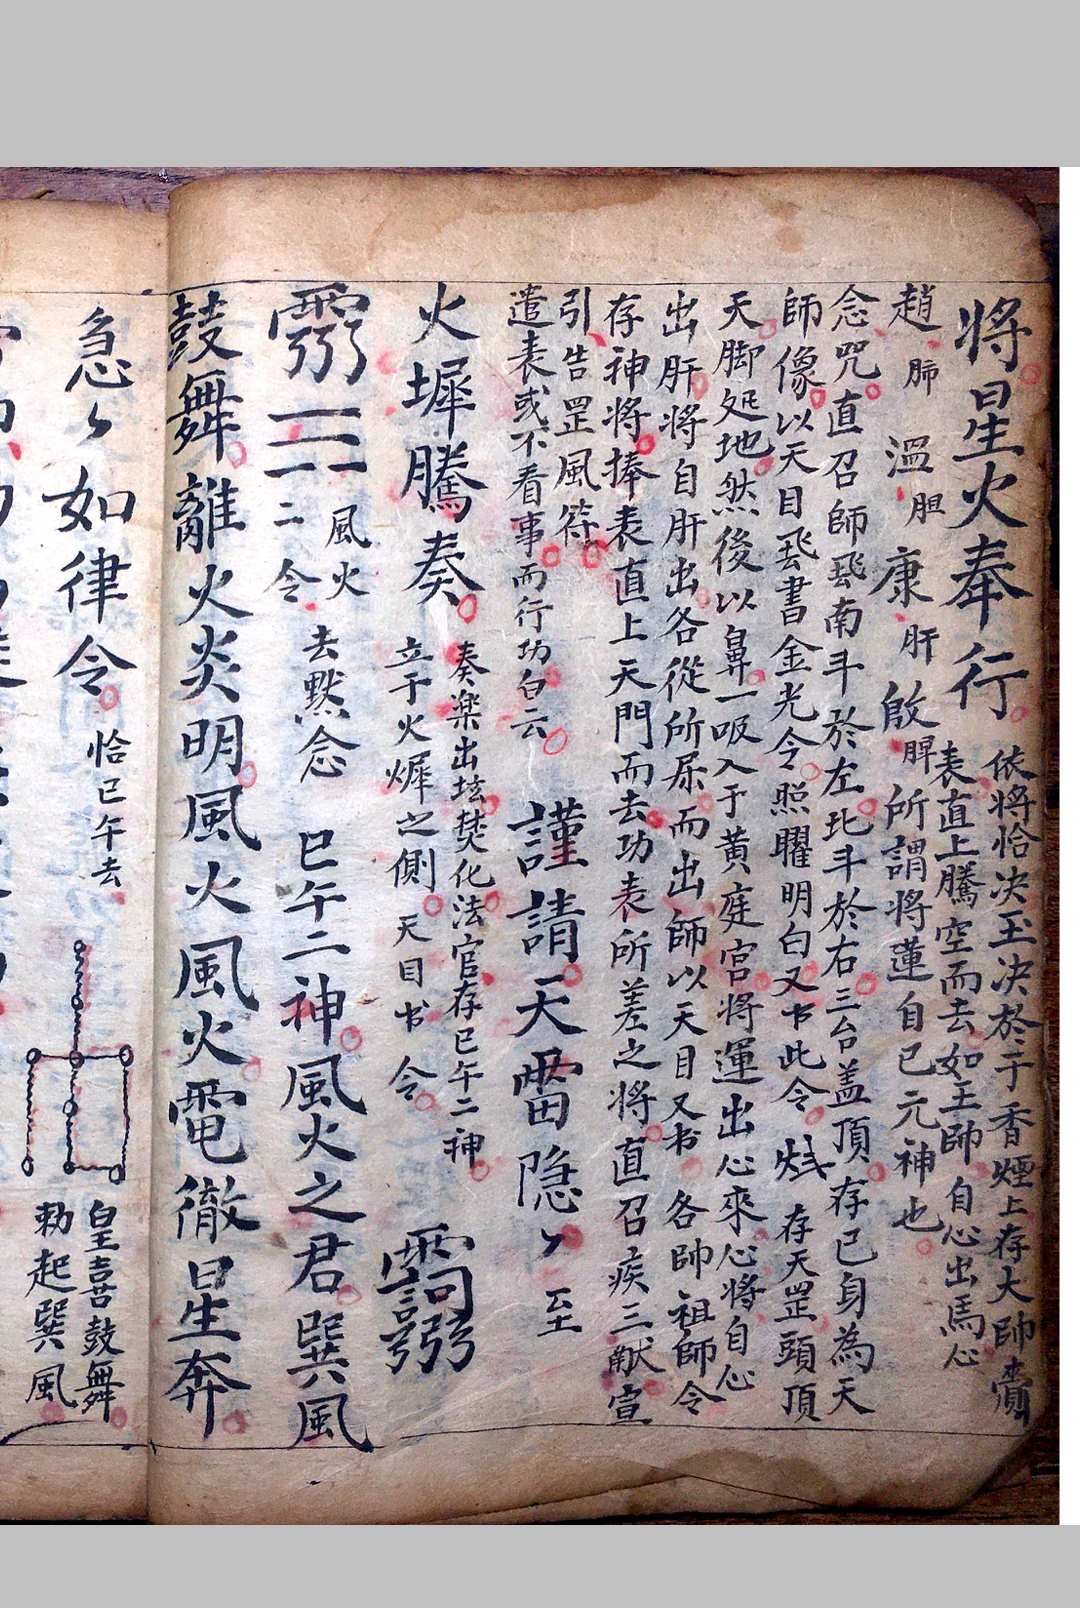 將星火奉行
依將恰決玉決於于香煙上存大帥賫
表直上騰空而去如王帥自心出馬心
趙肺溫胆康肝殷脾所謂將運自己元神也
念咒直召師飛南斗於左北斗於右三台盖頂存已身為天
師像以天目飛書金光令照曜明白又书此令存天罡頭頂
天脚処地然後以鼻一吸入于黄庭宫將運出心來心將自心
出肝將自肝出各從所屌而出師以天目又书各帥祖師令
存神將捧表直上天門而去功表所差之將直召疾三献宣
引告罡風符
遣表或不看事而行功白云
謹請天雷隐々至
火墀騰奏
奏樂出坛焚化法官存巳午二神
立于火墀之側天目书令
二一二令
一風火
去默念
巳午二神風火之君巽風
鼓舞離火炎明風火風火電徹星奔
急々如律令
恰巳午去
皇喜鼓舞
勅起巽風